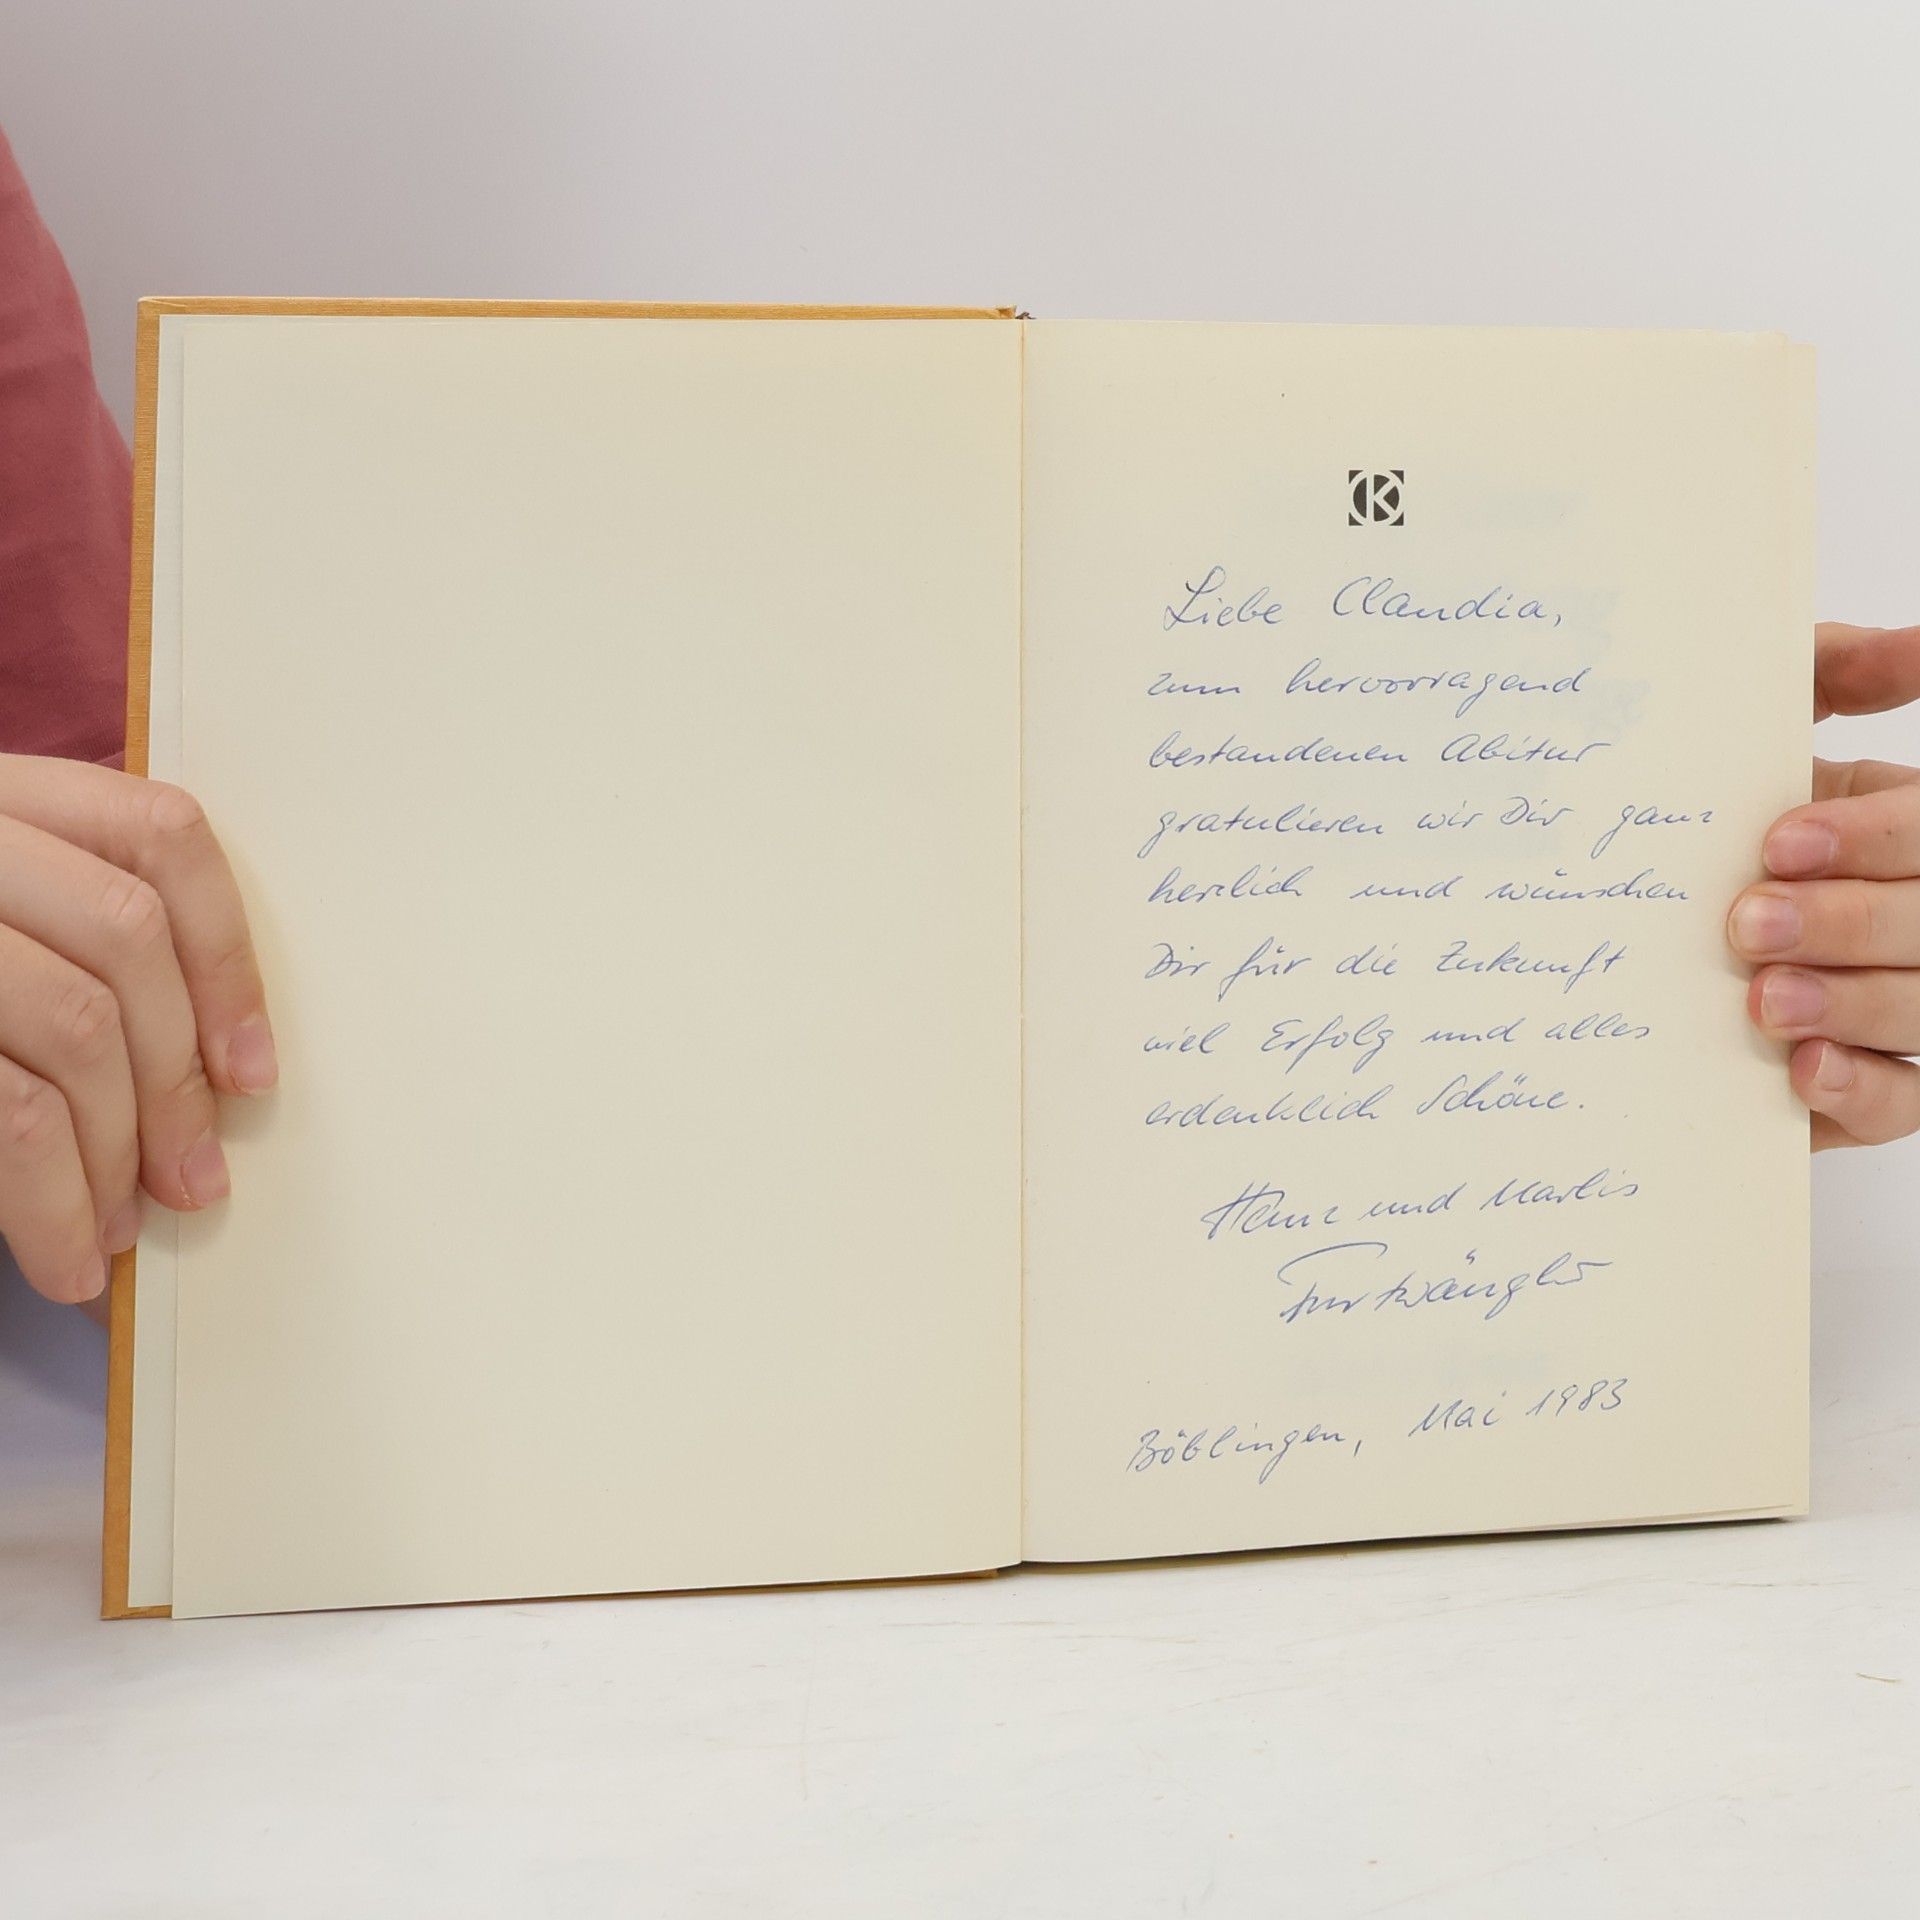 K
Liebe Claudia,
zum hervorragend
bestandenen Abitur
gratulieren wir Dir ganz
herzlich und wünschen
Dir für die Zukunft
viel Erfolg und alles
erdenklich Schöne.
Heinz und Marlis
Furtwängler
Böblingen, Mai 1983